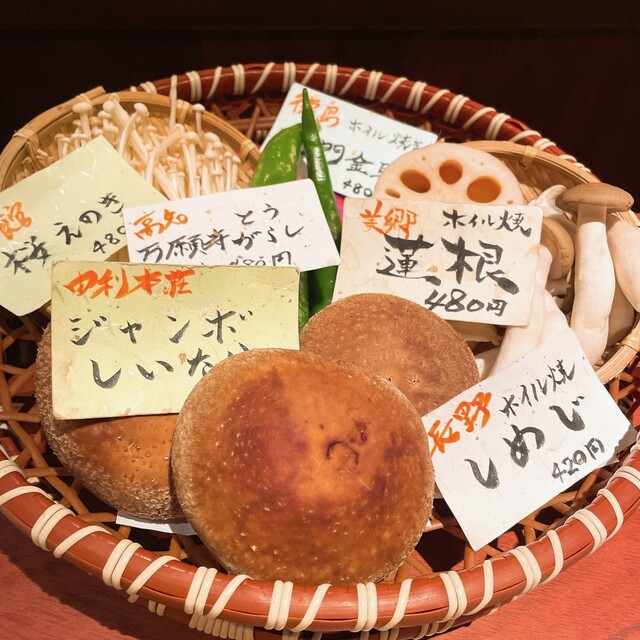 ホイル焼
金
480
えのき
480
高知
とう
万願寺がらし
480円
美郷
ホイル焼
蓮根
480円
由利本荘
ジャンボ
しいたけ
長野
ホイル焼
しめじ
420円